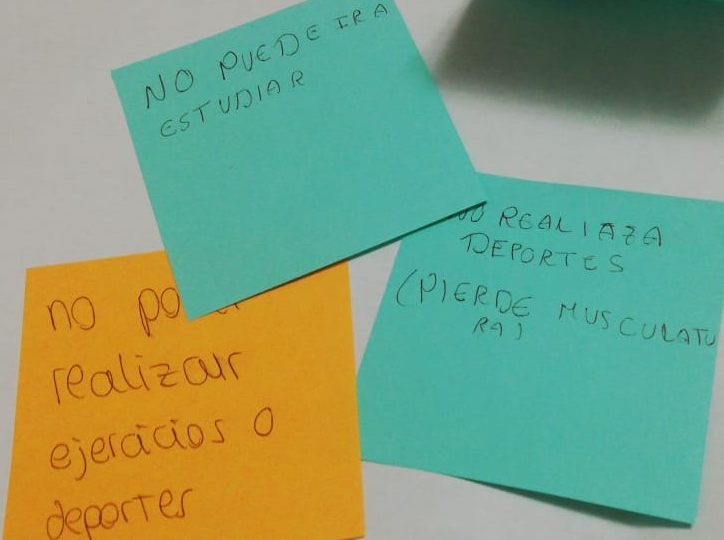 NO PUEDE IR A
ESTUDIAR
NO REALIAZA
DEPORTES
(PIERDE MUSCULATU
RA)
no
realizar
ejercicios o
deporter